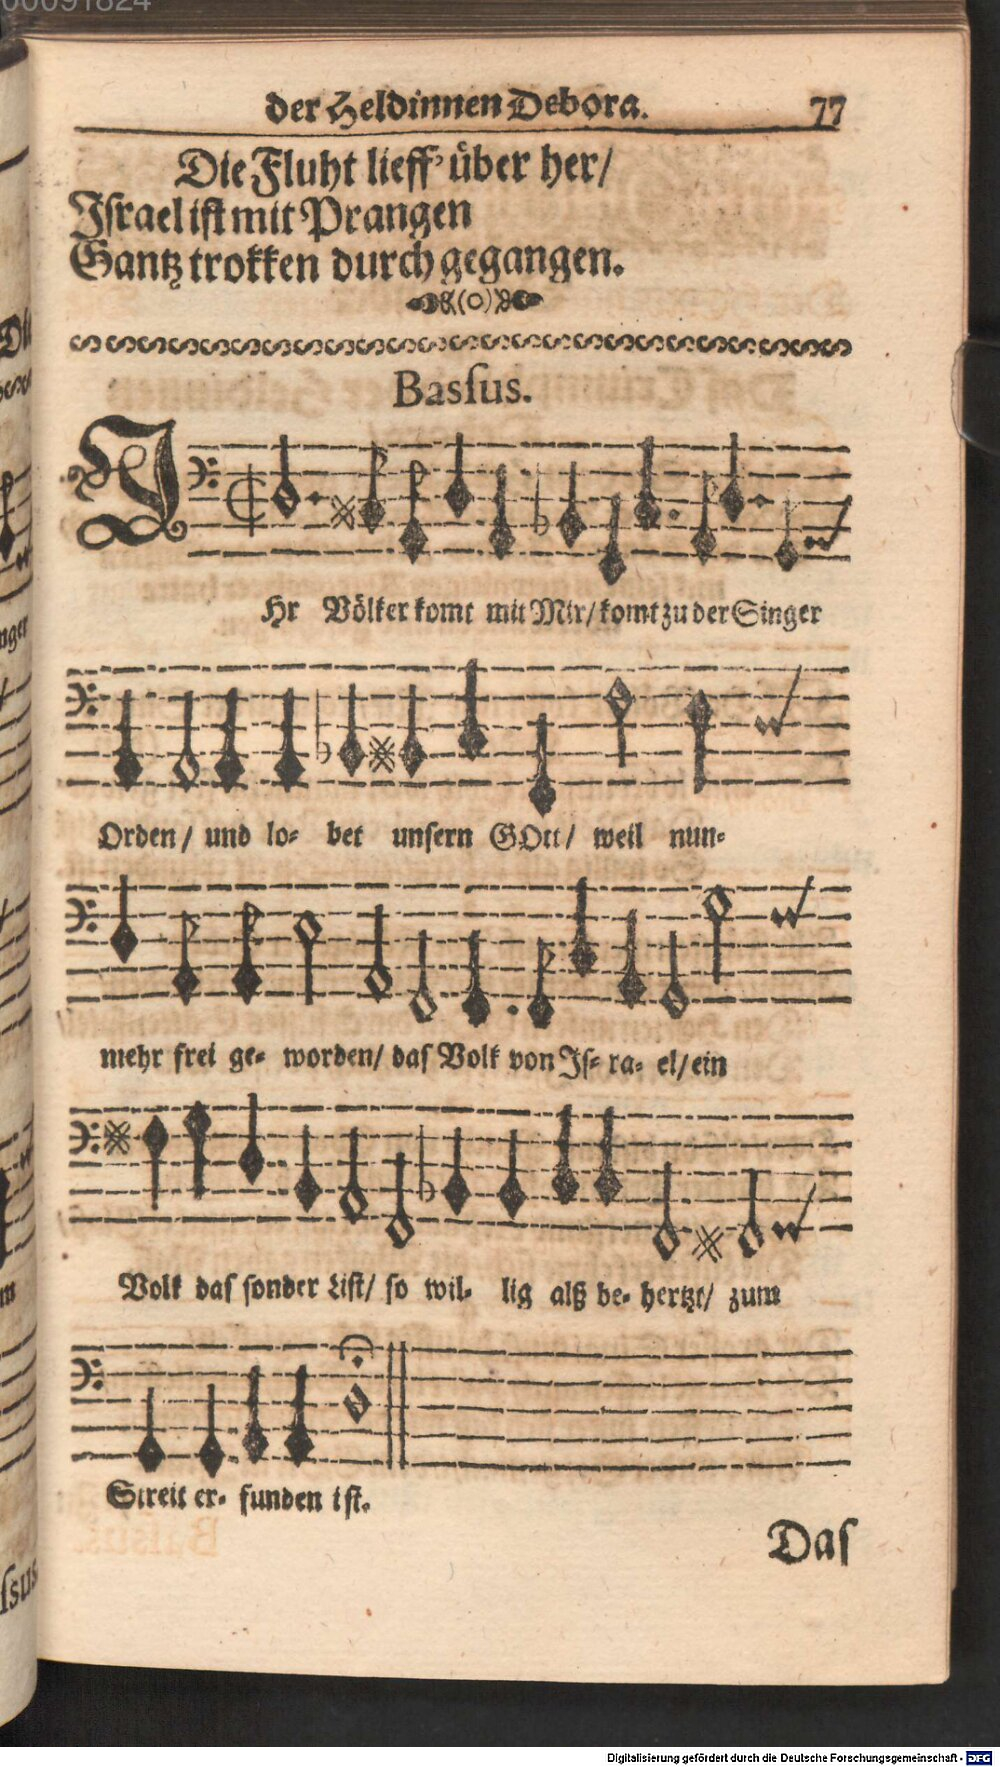 00091824
der Heldinnen Debora. 77
Die Fluht lieff' über her/
Jſrael iſt mit Prangen
Gantz trokken durch gegangen.
Basſus.
J
Hr Völker komt mit Mir/ komt zu der Singer
Orden/ und lo- bet unſern GOtt/ weil nun-
mehr frei ge- worden/ das Volk von Jſ- ra- el/ ein
Volk das ſonder Liſt/ ſo wil- lig alß be- hertzt/ zum
Streit er- funden iſt.
Das
Digitalisierung gefördert durch die Deutsche Forschungsgemeinschaft - DFG